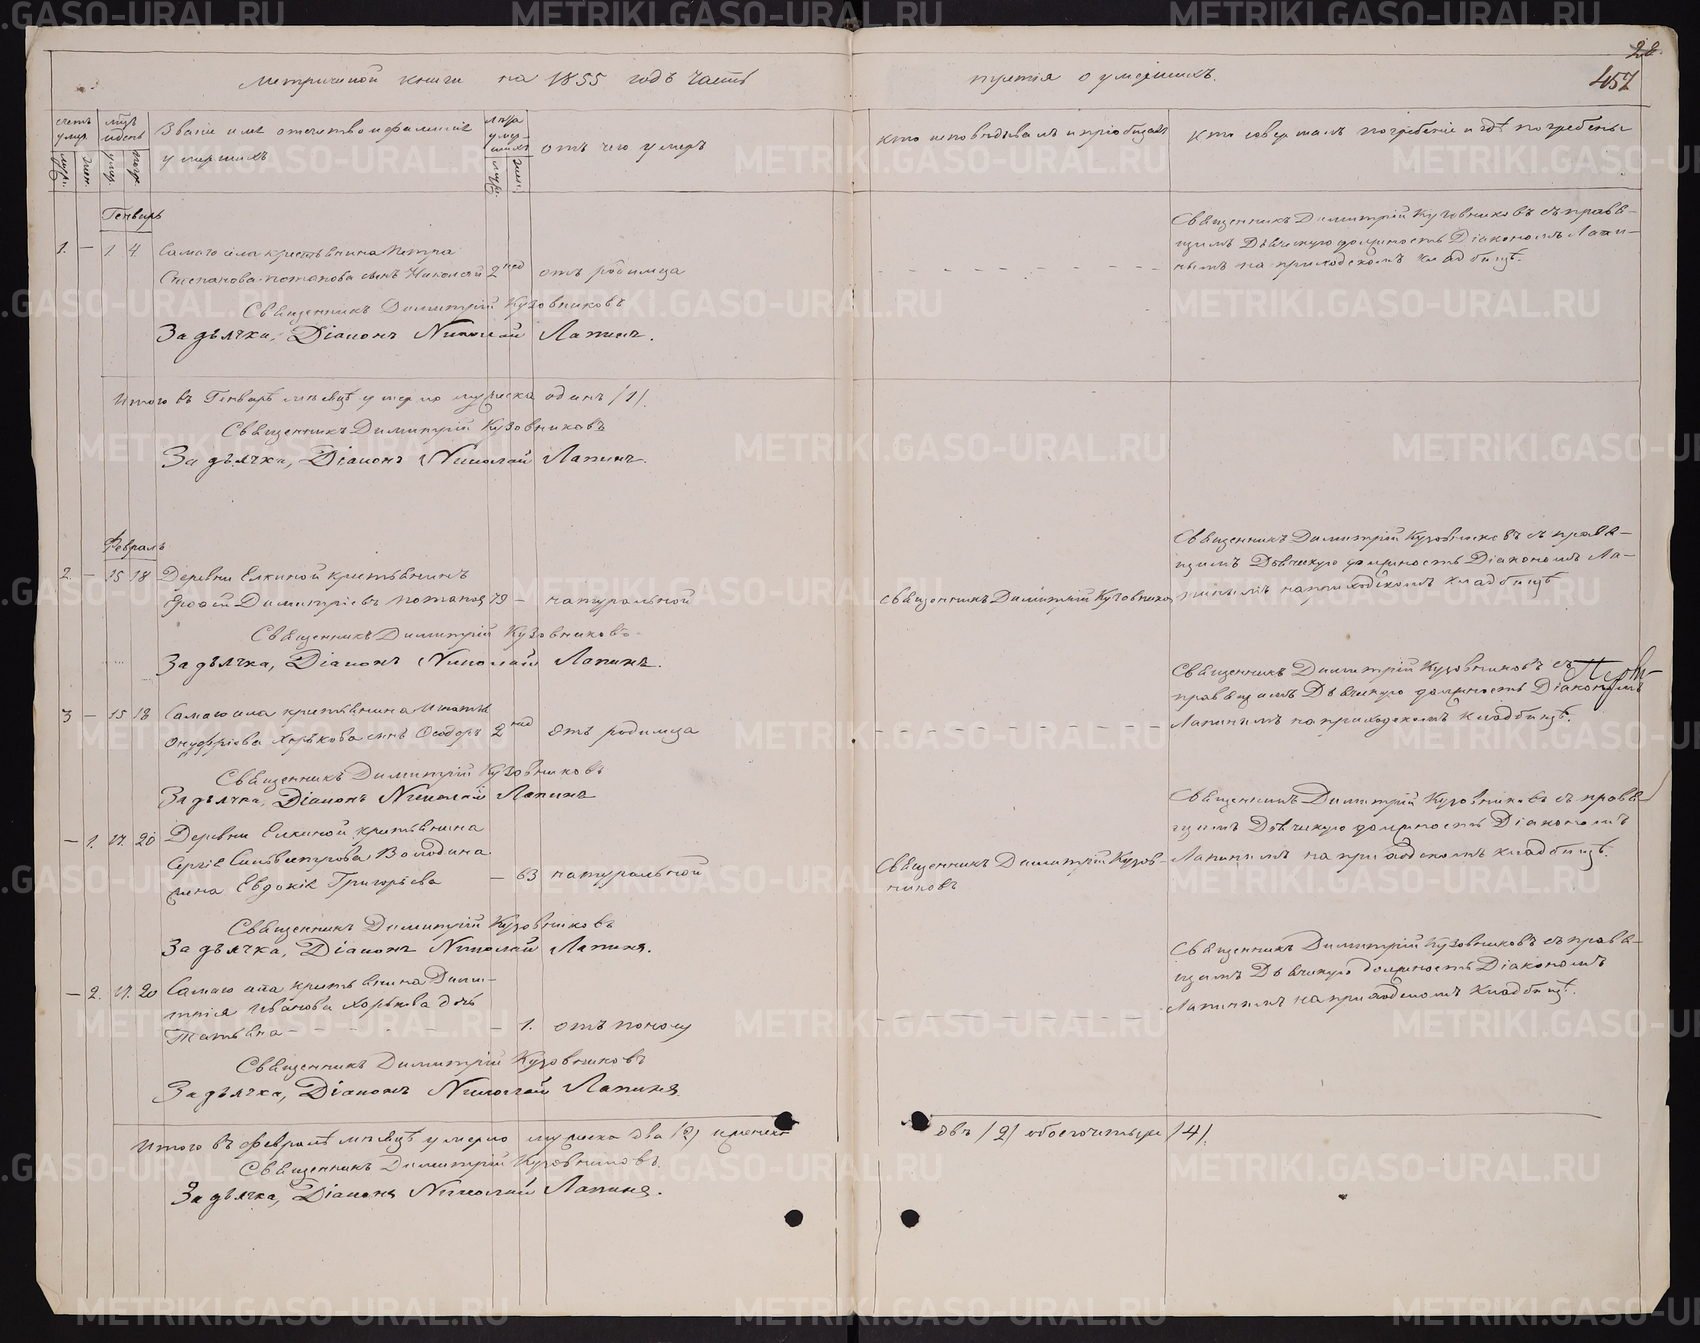 Метричной книги на 1855 годъ часть третія о умершихъ.
28.
457
счетъ умер.
муж.
жен.
мѣсяцъ и день
умер.
погр.
Званіе имя отечество и фамилія умершихъ
лѣта умершихъ
муж.
жен.
отъ чего умеръ
кто исповѣдывалъ и пріобщалъ
Кто совершалъ погребеніе и гдѣ погребены
Генварь
1. — 1 4 Самаго села крестьянина Петра
Степанова Потапова сынъ Николай 2 нед отъ родимца
Священникъ Димитрій Кузовниковъ съ правя-
щимъ Дьяческую должность Діакономъ Лапи-
нымъ на приходскомъ кладбищѣ.
Священникъ Димитрій Кузовниковъ
За дьячка, Діаконъ Николай Лапинъ.
Итого въ Генварѣ мѣсяцѣ умерло мужеска одинъ /1/.
Священникъ Димитрій Кузовниковъ
За дьячка, Діаконъ Николай Лапинъ.
Февраль
2. — 15 18 Деревни Елкиной крестьянинъ
Димитріевъ Потаповъ 79 — натуральной
Священникъ Димитрій Кузовниковъ
Священникъ Димитрій Кузовниковъ съ правя-
щимъ Дьяческую должность Діакономъ Ла-
пинымъ на приходскомъ кладбищѣ
Священникъ Димитрій Кузовниковъ.
За дьячка, Діаконъ Николай Лапинъ.
3 — 15 18 Самаго села крестьянина Игнатія
Онуфріева Хорькова сынъ Ѳеодоръ 2 нед отъ родимца
Священникъ Димитрій Кузовниковъ съ
правящимъ Дьяческую должность Діакономъ
Лапинымъ на приходскомъ кладбищѣ.
Священникъ Димитрій Кузовниковъ
За дьячка, Діаконъ Николай Лапинъ
— 1. 17. 20 Деревни Елкиной крестьянина
Сергія Сильвестрова Володина
жена Евдокія Григорьева — 63 натуральной
Священникъ Димитрій Кузов-
никовъ
Священникъ Димитрій Кузовниковъ съ правя-
щимъ Дьяческую должность Діакономъ
Лапинымъ на приходскомъ кладбищѣ.
Священникъ Димитрій Кузовниковъ
За дьячка, Діаконъ Николай Лапинъ.
— 2. 17. 20 Самаго села крестьянина Дими-
трія Иванова Хорькова дочь
Татьяна — — 1. отъ поносу
Священникъ Димитрій Кузовниковъ съ правя-
щимъ Дьяческую должность Діакономъ
Лапинымъ на приходскомъ кладбищѣ.
Священникъ Димитрій Кузовниковъ
За дьячка, Діаконъ Николай Лапинъ.
Итого въ Февралѣ мѣсяцѣ умерло мужеска два /2/ и женска двѣ /2/ обоего четыре /4/.
Священникъ Димитрій Кузовниковъ.
За дьячка, Діаконъ Николай Лапинъ.
METRIKI.GASO-URAL.RU